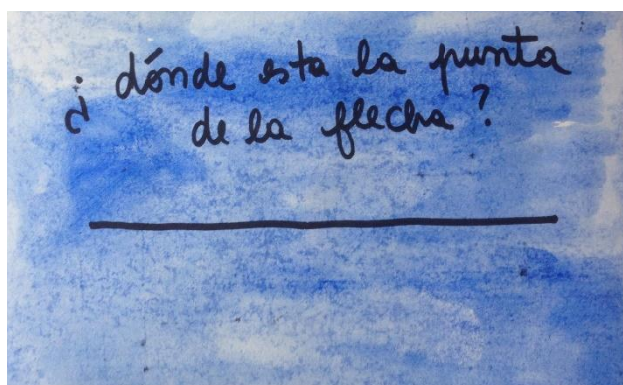 ¿dónde esta la punta
de la flecha?